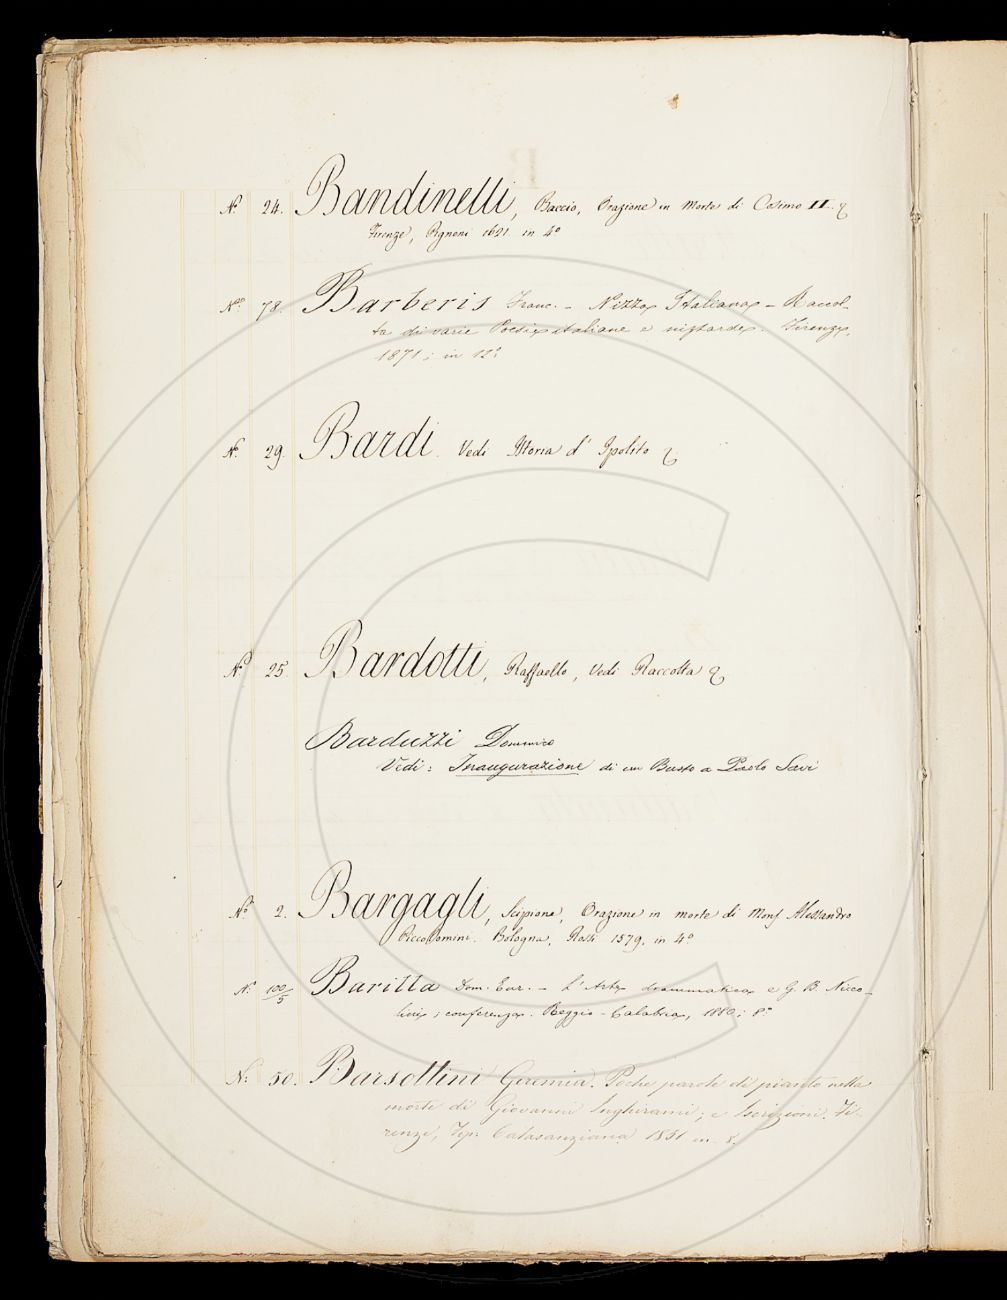 N.º 24. Bandinelli, Baccio, Orazione in Morte di Cosimo II. &
Firenze, Pignoni 1621 in 4º
N.º 78. Barberis Franc. - Nizza Italiana - Raccol-
ta di varie Poesie italiane e nizzarde. Firenze,
1871; in 12º
N.º 29. Bardi. Vedi Istoria d' Ipolito &
N.º 25. Bardotti, Raffaello, Vedi Raccolta &
Barduzzi Domenico
Vedi: Inaugurazione di un Busto a Paolo Savi
N.º 2. Bargagli, Scipione, Orazione in morte di Monsʳ Alessandro
Piccolomini. Bologna, Rossi 1579. in 4º
N.º 100/5 Barilla Dom. Eur. - L' Arte drammatica e G. B. Nicco-
lini; conferenza. Reggio-Calabria, 1880; 8º
N.º 50. Barsottini Geremia. Poche parole di pianto nella
morte di Giovanni Inghirami; e Iscrizioni. Fi-
renze, Tip. Calasanziana 1851 in 8.